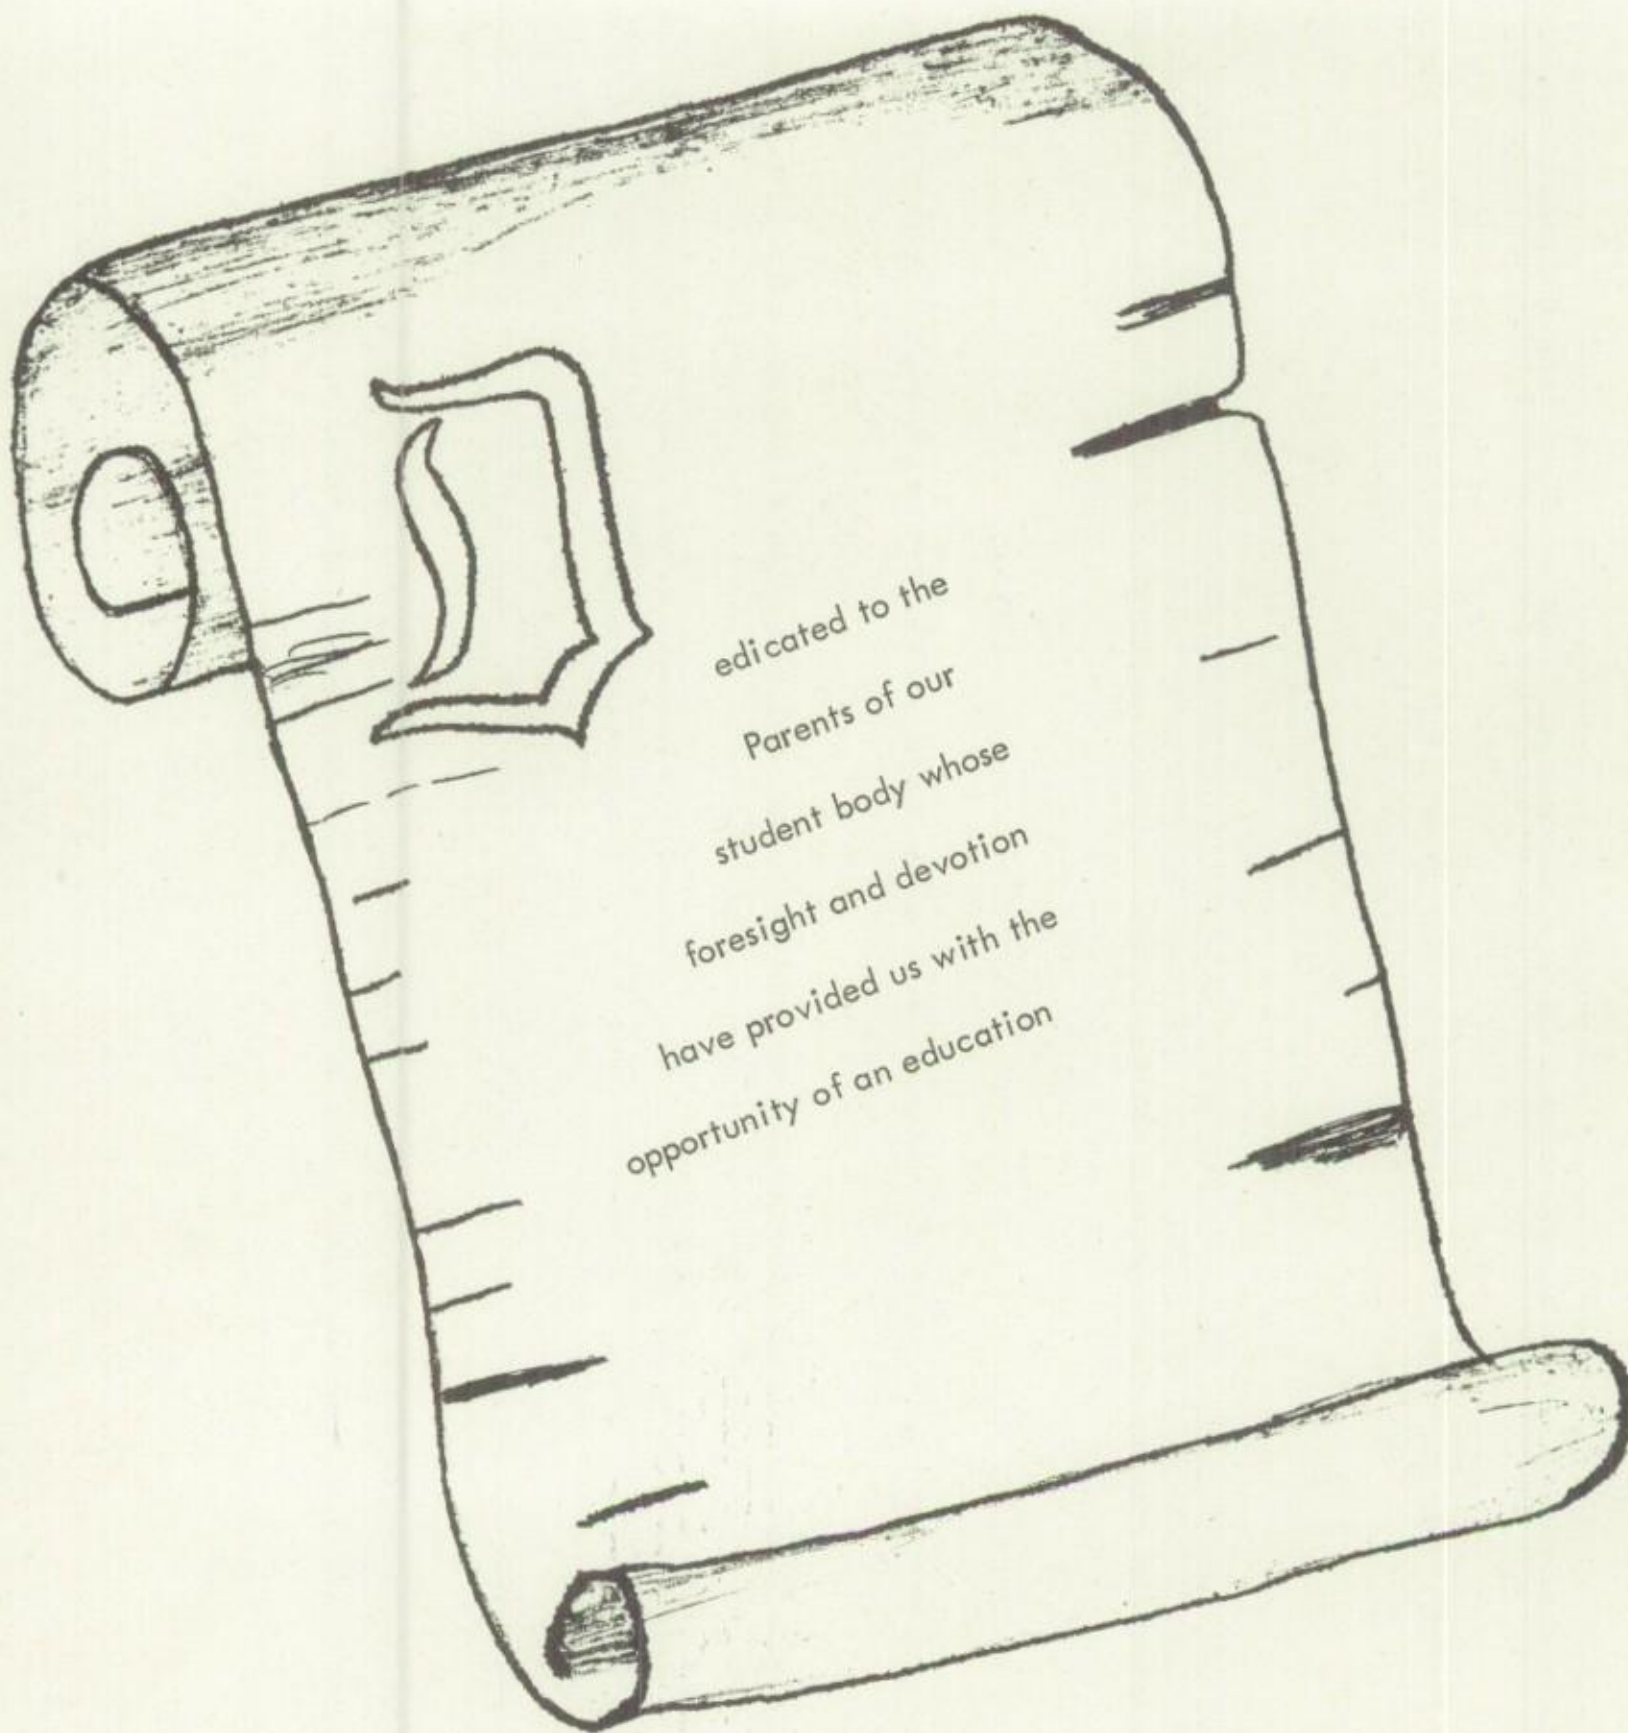 Dedicated to the
Parents of our
student body whose
foresight and devotion
have provided us with the
opportunity of an education